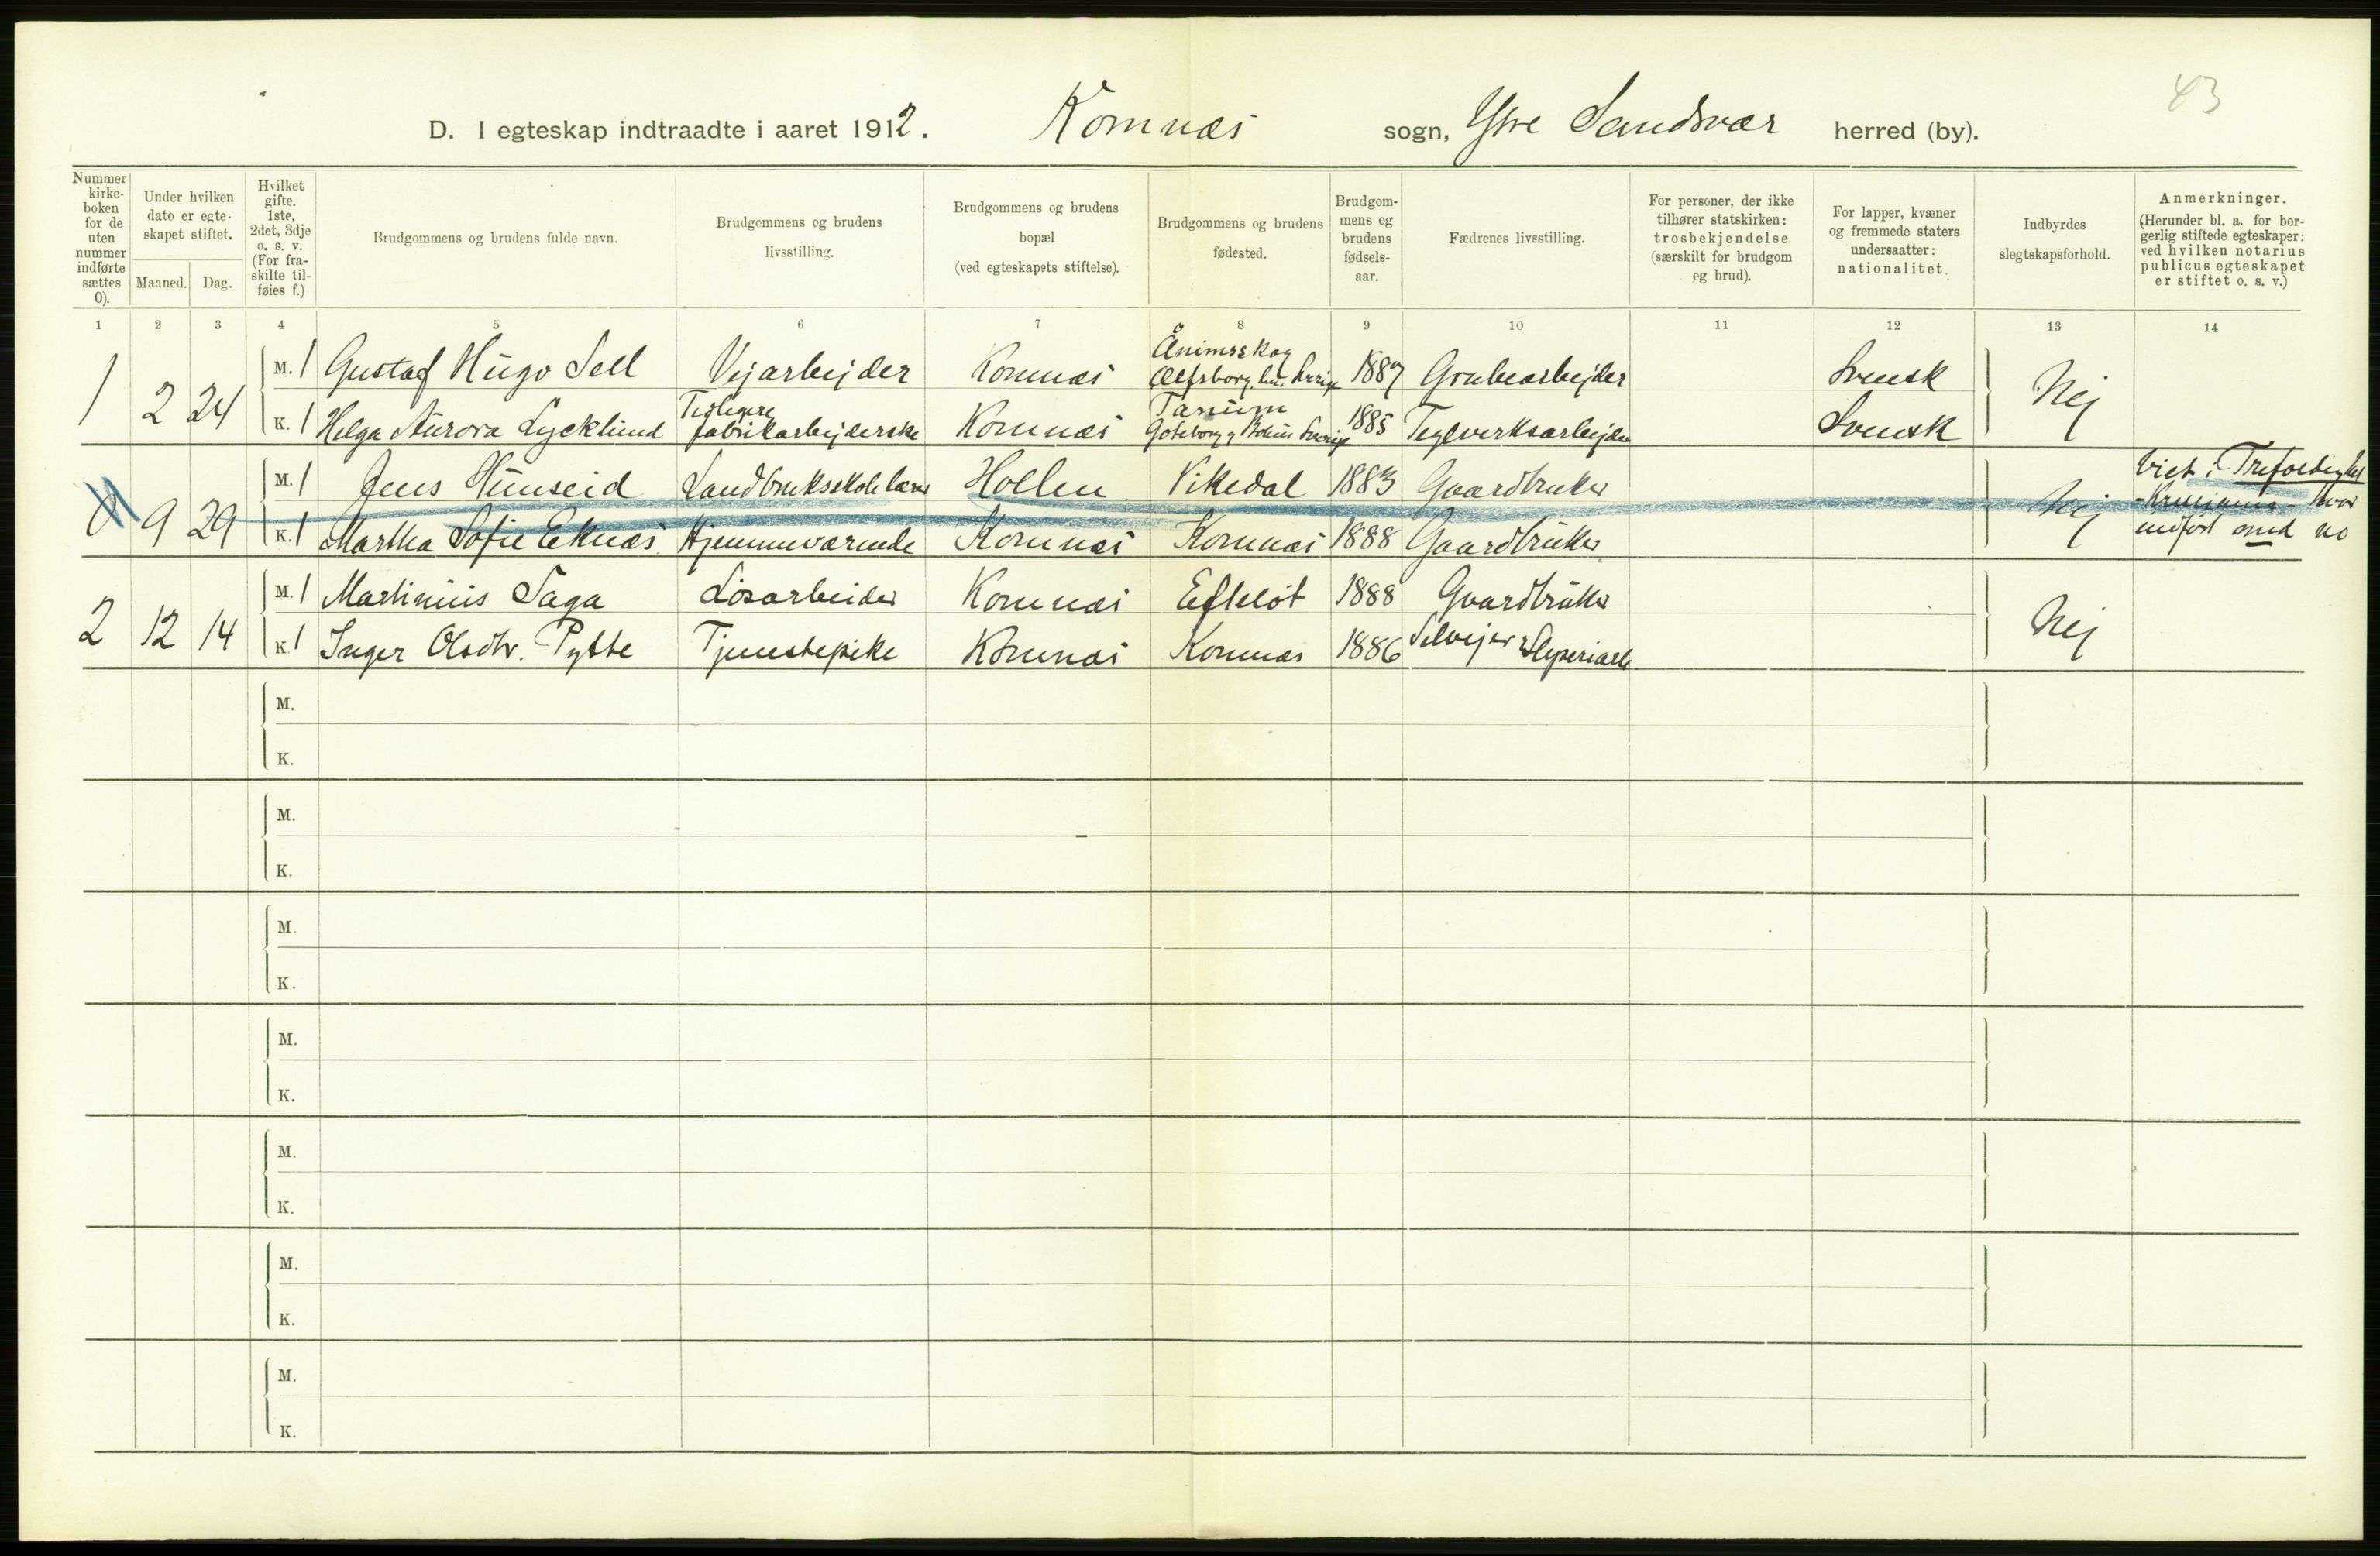 43
D. I egteskap indtraadte i aaret 1912. Komnæs sogn, Ytre Sandsvær herred (by).
Nummer kirke-boken for de uten nummer indførte sættes 0).
Under hvilken dato er egte-skapet stiftet.
Maaned. Dag.
Hvilket gifte. 1ste, 2det, 3dje o. s. v. (For fra-skilte til-føies f.)
Brudgommens og brudens fulde navn.
Brudgommens og brudens livsstilling.
Brudgommens og brudens bopæl (ved egteskapets stiftelse).
Brudgommens og brudens fødested.
Brudgom-mens og brudens fødsels-aar.
Fædrenes livsstilling.
For personer, der ikke tilhører statskirken: trosbekjendelse (særskilt for brudgom og brud).
For lapper, kvæner og fremmede staters undersaatter: nationalitet.
Indbyrdes slegtskapsforhold.
Anmerkninger. (Herunder bl. a. for bor-gerlig stiftede egteskaper: ved hvilken notarius publicus egteskapet er stiftet o. s. v.)
1 2 3 4 5 6 7 8 9 10 11 12 13 14
1 2 24 M. 1 Gustaf Hugo Sell Vejarbejder Komnæs Ånimskog Elfsborg. län. Sverige 1887 Grubearbejder Svensk Nej
K. 1 Helga Aurora Lycklund Tidligere fabrikarbejderske Komnæs Tanum Göteborg og Bohus Sverige 1885 Teglverksarbejder Svensk
9 29 M. 1 Jens Hunseid Landbruksskolelærer Hollen Vikedal 1883 Gaardbruker Nej Viet i Trefoldighet
K. 1 Martha Sofie Eknæs Hjemmeværende Komnæs Komnæs 1888 Gaardbruker indført med no
2 12 14 M. 1 Martinius Saga Løsarbeider Komnæs Efteløt 1888 Gaardbruker Nej
K. 1 Inger Olsdtr. Pytte Tjenestepike Komnæs Komnæs 1886 Selvejer &
M.
K.
M.
K.
M.
K.
M.
K.
M.
K.
M.
K.
M.
K.